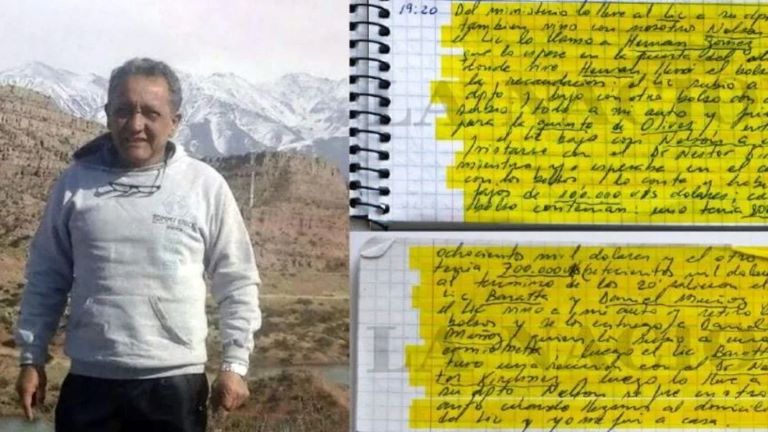 19:20 Del ministerio lo lleve al Lic a su dpto
tambien vino con nosotro Nelson
el Lic lo llamo a Hernan Gomez
que lo espere en la puerta del
donde vive Hernan, llevó el bolso
la recaudacion; el Lic subio a
dpto y bajo con otro bolso con
subio todo a mi auto y
para la quinta de Olivos y
el Lic bajo con Nelson a
con el Dr Nestor
mientras yo esperaba en el
con los bolsos y lo conte y
dolares;
bolso contenian: uno tenia 800
ochocientos mil dolares y el otro
tenia 700.000 (setecientos mil dolares
al termino de los 20' salieron el
Lic Baratta y Daniel Muñoz
el Lic vino a mi auto y retiro
bolsos y se los entrego a Daniel
Muñoz quien los subio a una
camioneta; luego el Lic Baratta
tuvo una reunion con el Dr Nes
tor Kirchner luego lo lleve a
su dpto Nelson se fue en otro
auto cuando llegamos al domicilio
del Lic y yo me fui a casa.
TOMMY
LA NACION